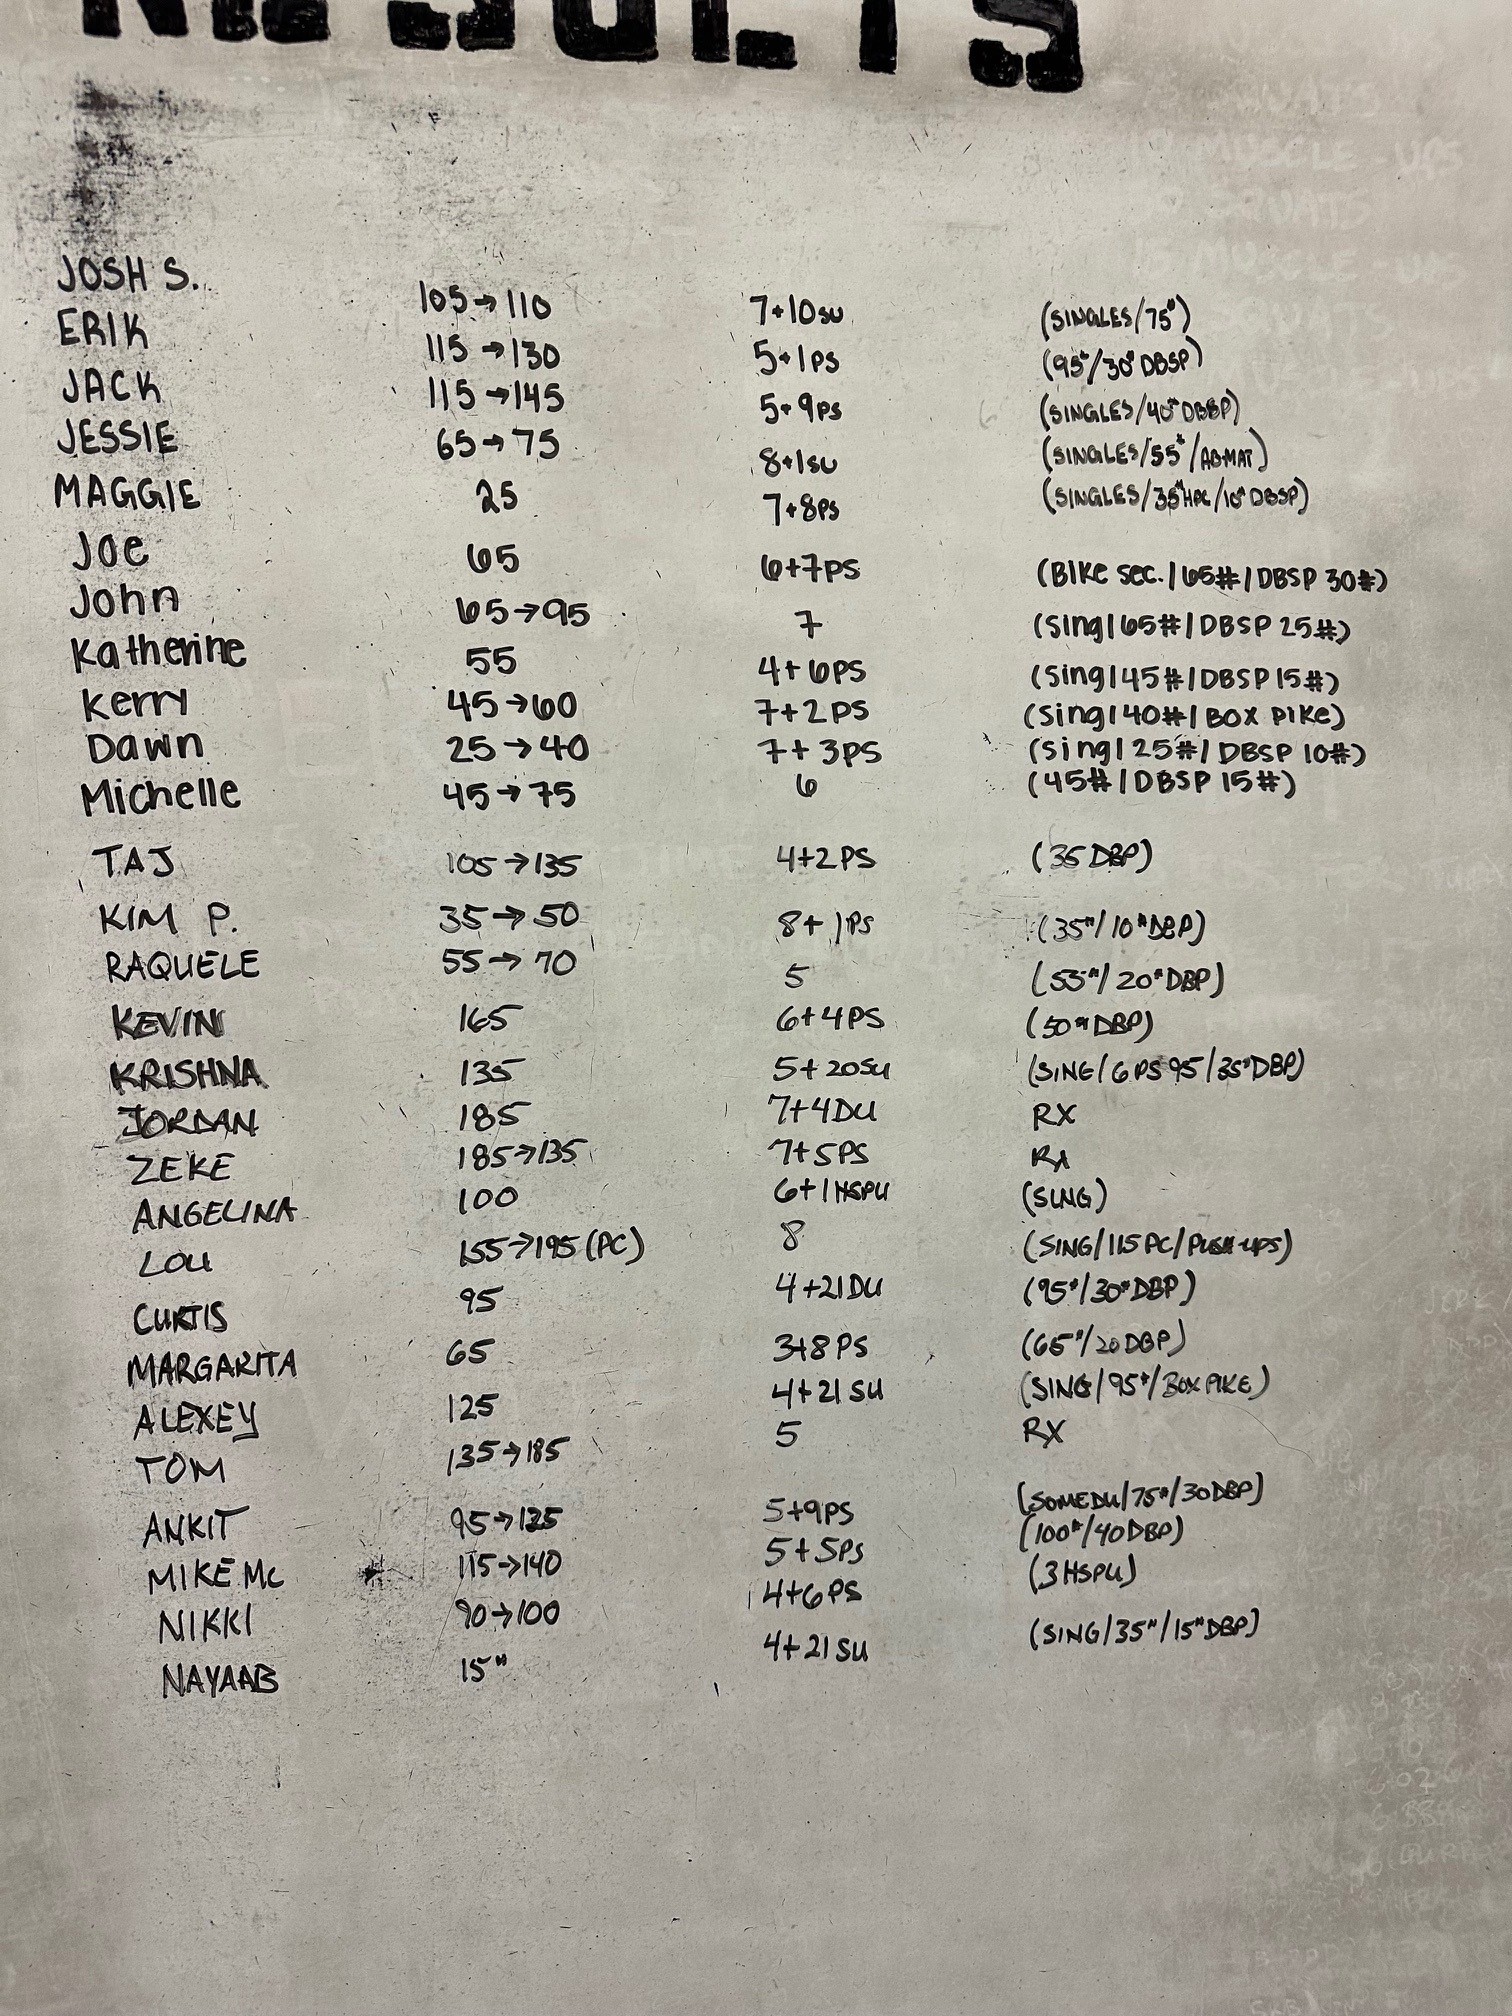 RESULTS
JOSH S. 105→110 7+10SU (SINGLES/75#)
ERIK 115→130 5+1PS (95#/30# DBSP)
JACK 115→145 5+9PS (SINGLES/40# DBSP)
JESSIE 65→75 8+1SU (SINGLES/55#/ABMAT)
MAGGIE 25 7+8PS (SINGLES/35#HPC/10# DBSP)
Joe 65 6+7PS (Bike sec. | 65# | DBSP 30#)
John 65→95 7 (Sing | 65# | DBSP 25#)
Katherine 55 4+6PS (Sing | 45# | DBSP 15#)
Kerry 45→60 7+2PS (Sing | 40# | BOX Pike)
Dawn 25→40 7+3PS (Sing | 25# | DBSP 10#)
Michelle 45→75 6 (45# | DBSP 15#)
TAJ 105→135 4+2PS (35 DBP)
KIM P. 35→50 8+1PS (35#/10# DBP)
RAQUELE 55→70 5 (55#/20# DBP)
KEVIN 165 6+4PS (50# DBP)
KRISHNA 135 5+20SU (SING/6PS 95/35# DBP)
JORDAN 185 7+4DU RX
ZEKE 185→135 7+5PS RX
ANGELINA 100 6+1HSPU (SING)
LOU 155→195 (PC) 8 (SING/115PC/PUSH-UPS)
CURTIS 95 4+21DU (95#/30# DBP)
MARGARITA 65 3+8PS (65#/20DBP)
ALEXEY 125 4+21SU (SING/95#/BOX PIKE)
TOM 135→185 5 RX
ANKIT 95→125 5+9PS (SOMEDU/75#/30DBP)
MIKE Mc 115→140 5+5PS (100#/40DBP)
NIKKI 90→100 4+6PS (3 HSPU)
NAYAAB 15# 4+21SU (SING/35#/15# DBP)